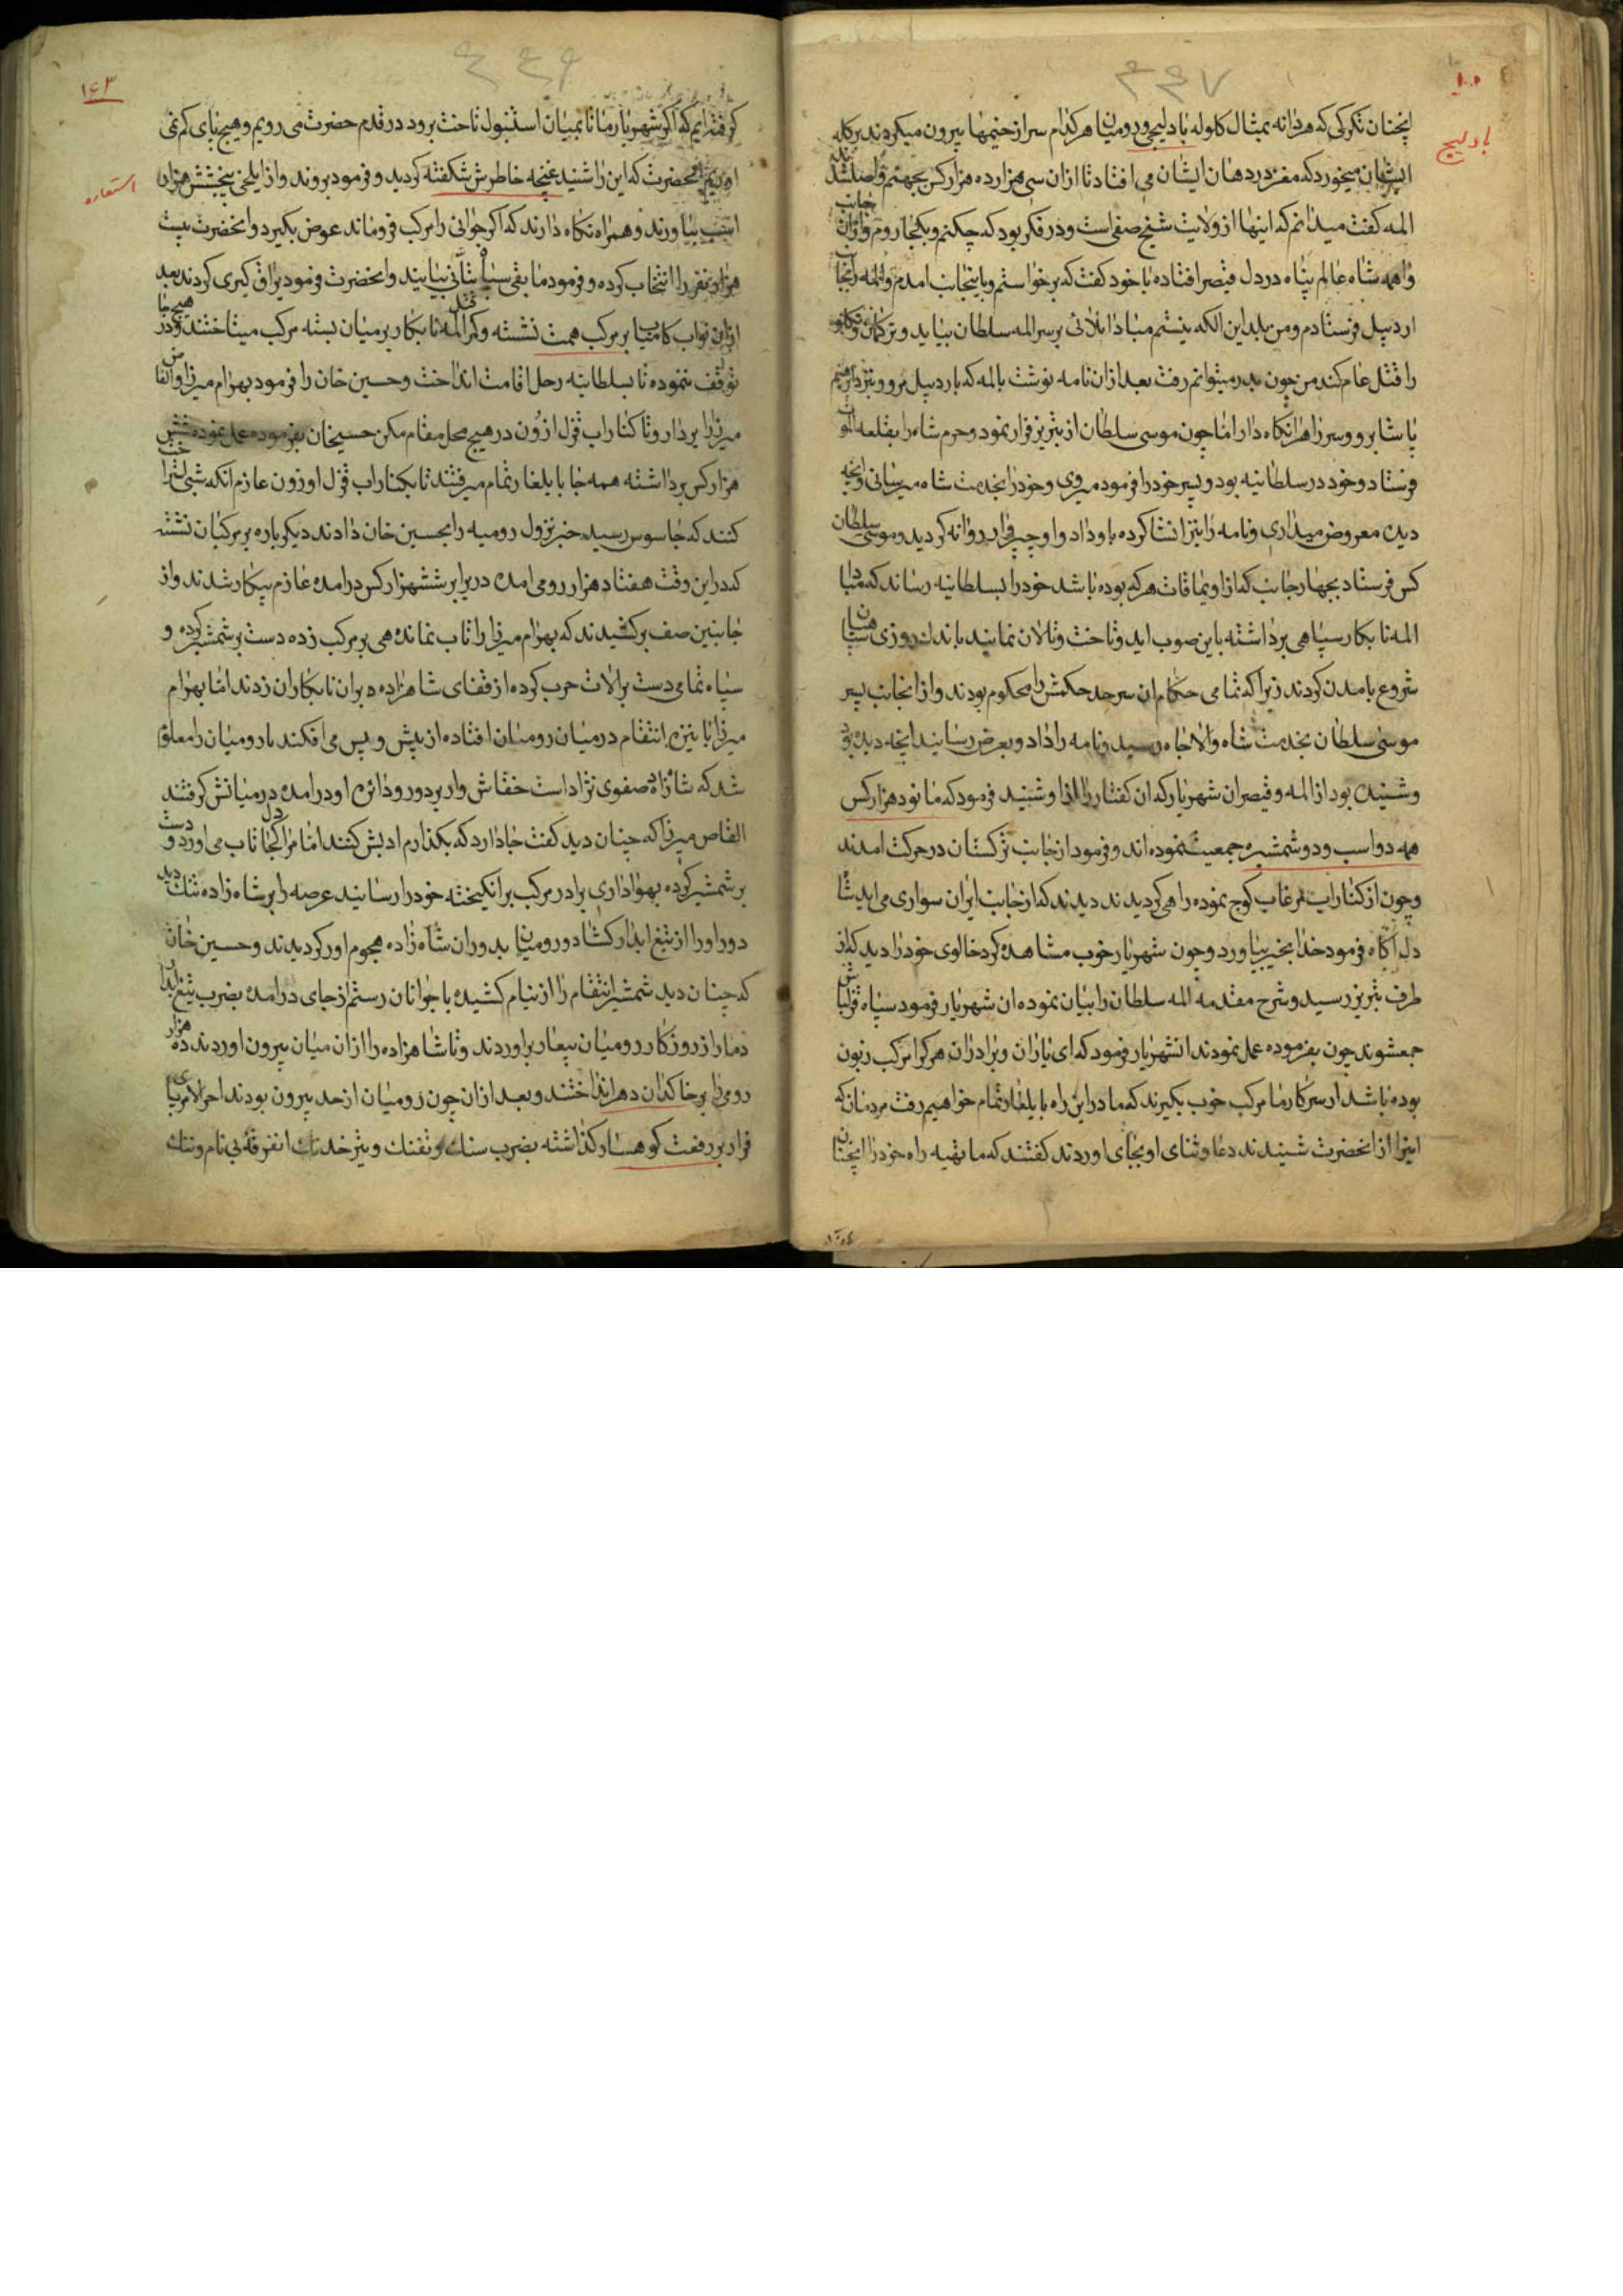 ۳۳۷
۱۰۰
بادلیج
اینچنان تکرکی که هر دانه بمثال کلوله بادلیجی و رومیان هر کدام سر از خیمها بیرون میکردند بر کله
ایشان میخورد که مغز در دهان ایشان می افتاد تا از ان سی هزار ده هزار کس بجهنم واصل شدند
المه کفت میدانم که اینها از ولایت شیخ صفی است و در فکر بود که چکنم و بکجا روم و از ان جانب
واهمه شاه عالم پناه در دل قیصر افتاده با خود کفت که برخواستم و باینجانب امدم و المه را بجانب
اردبیل فرستادم و من بلد این الکه نیستم مبادا بلائی بر سر المه سلطان بیاید و ترکمان
را قتل عام کند من چون بدر میتوانم رفت بعد از ان نامه نوشت بالمه که باردبیل مرو و نزد ابرهیم
پاشا برو و سر راهرا نکاه دار اما چون موسی سلطان از تبریز فرار نمود و حرم شاه را بقلعه الموت
فرستاد و خود در سلطانیه بود و پسر خود را فرمود میروی و خود را بخدمت شاه میرسانی و انچه
دیده معروض میداری و نامه را نیز انشا کرده باو داد و او چپر وار روانه کردید و موسی سلطان
کس فرستاد بچهار جانب که از اویماقات هر که بوده باشد خود را بسلطانیه رساند که مبادا
المه نابکار سپاهی برداشته باین صوب اید و تاخت و تالان نمایند باندک روزی سپاهیان
شروع بامدن کردند زیرا که تمامی حکام ان سرحد حکمش را محکوم بودند و از انجانب پسر
موسی سلطان بخدمت شاه والاجاه رسید و نامه را داد و بعرض رسانید انچه دیده بود
وشنیده بود از المه و قیصر ان شهریار که ان کفتار را از او شنید فرمود که ما نود هزار کس
همه دو اسب و دو شمشیره جمعیت نموده اند و فرمود از جانب ترکستان در حرکت امدند
وچون از کنار اب مرغاب کوچ نموده راهی کردیدند دیدند که از جانب ایران سواری می اید شاه
دل آکاه فرمود خدا بخیر بیاورد و چون شهریار خوب مشاهده کرد خالوی خود را دید که از
طرف تبریز رسید و شرح مقدمه المه سلطان را بیان نموده ان شهریار فرمود سپاه قزلباش
جمعشوند چون بفرموده عمل نمودند انشهریار فرمود که ای یاران و برادران هر کرا مرکب زبون
بوده باشد از سرکار ما مرکب خوب بکیرند که ما در این راه بایلغار تمام خواهیم رفت مردمان که
اینرا از انحضرت شنیدند دعا و ثنای او بجای اوردند کفتند که ما تهیه راه خود را اینچنان
۱۴۳
کرفته ایم که اکر شهریار ما تا بمیان استنبول تاخت برود در قدم حضرت می رویم و هیچ پای کم نمی
اوریم انحضرت که این را شنید غنچه خاطرش شکفته کردید و فرمود بروند و از ایلخی پنجشش هزار
استعاره
اسب بیاورند و همراه نکاه دارند که اکر جوانی را مرکب فرو ماند عوض بکیرد و انحضرت بیست
هزار نفر را انتخاب کرده و فرمود ما بقی سپاه بتأنی بیایند و انحضرت فرمود یراق کیری کردند بعد
از ان نواب کامیاب بر مرکب همت نشسته و کمر قتل المه نابکار بر میان بسته مرکب میتاختند و در هیچ جا
توقف ننموده تا بسلطانیه رحل اقامت انداخت و حسین خان را فرمود بهرام میرزا و القاص
میرزا را بردار و تا کنار اب قزل ازون در هیچ محل مقام مکن حسینخان بفرموده عمل نموده شش
هزار کس برداشته همه جا بایلغار تمام میرفتند تا بکنار اب قزل اوزون عازم انکه شبی استراحت
کنند که جاسوس رسید خبر نزول رومیه را بحسین خان دادند دیکر باره بر مرکبان نشسته
که در این وقت هفتاد هزار رومی امده در برابر ششهزار کس درامده عازم پیکار شدند و از
جانبین صف برکشیدند که بهرام میرزا را تاب نمانده هی بر مرکب زده دست بر شمشیر کرده و
سپاه تمامی دست برالات حرب کرده از قفای شاهزاده بر ان نابکاران زدند اما بهرام
میرزا با نیزه انتقام در میان رومیان افتاده از پیش و پس می افکند بارومیان را معلوم
شد که شاهزاده صفوی نژاد است خفاش وار بر دور و دائره او درامده در میانش کرفتند
القاص میرزا که چنان دید کفت جا دارد که بکذارم ادبش کنند اما مرا دل کجا تاب می اورد و دست
بر شمشیر کرده بهواداری برادر مرکب برانکیخته خود را رسانید عرصه را بر شاه زاده تنک دید
دور او را از تیغ ابدار کشاد و رومیان بدوران شاه زاده هجوم اور کردیدند و حسین خان
که چنان دید شمشیر انتقام را از نیام کشیده با جوانان رستم از جای درامده بضرب تیغ ابدار
دمار از روزکار رومیان بیعار براوردند و تا شاهزاده را از ان میان بیرون اوردند ده هزار
رومی را بر خاکدان دهر انداختند و بعد از ان چون رومیان از حد بیرون بودند اخر الامر پای
فرار بر رفعت کوهسار کذاشته بضرب سنک و تفنک و تیر خدنک انفرقه بی نام و ننک